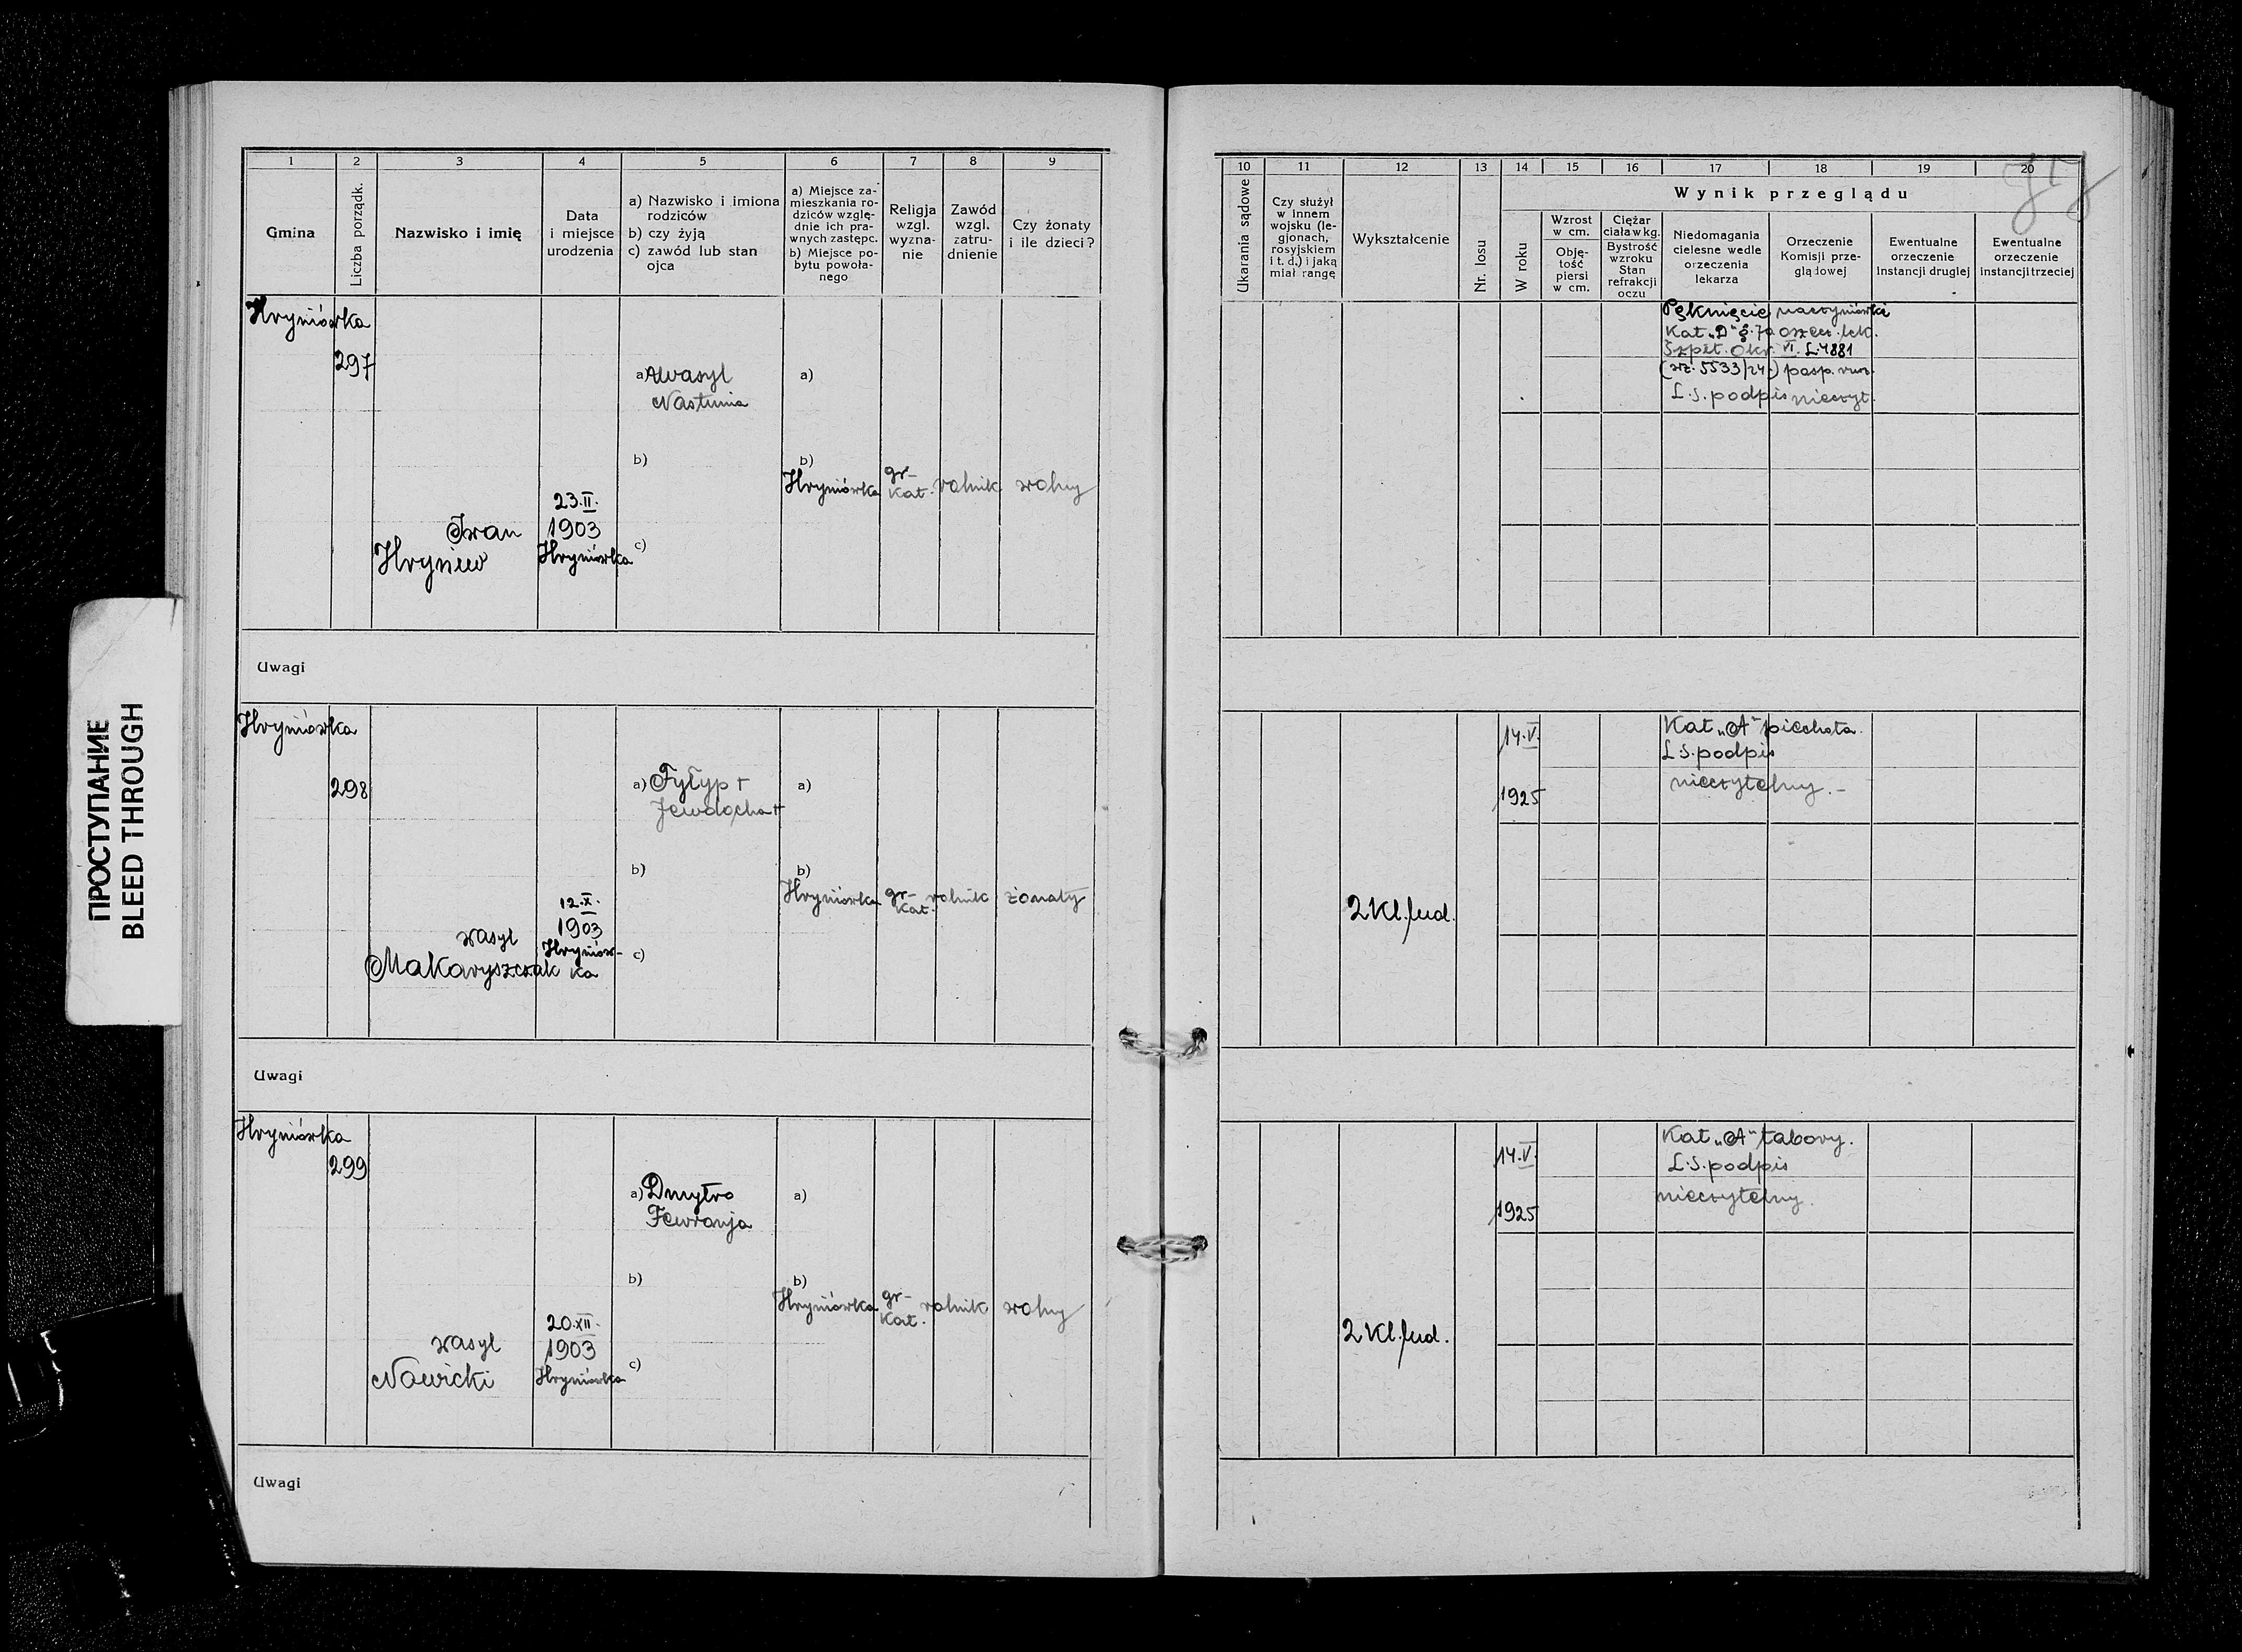 ПРОСТУПАНИЕ
BLEED THROUGH
1 2 3 4 5 6 7 8 9
Gmina
Liczba porządk.
Nazwisko i imię
Data
i miejsce
urodzenia
a) Nazwisko i imiona
rodziców
b) czy żyją
c) zawód lub stan
ojca
a) Miejsce za-
mieszkania ro-
dziców wzglę-
dnie ich pra-
wnych zastępc.
b) Miejsce po-
bytu powoła-
nego
Religja
wzgl.
wyzna-
nie
Zawód
wzgl.
zatru-
dnienie
Czy żonaty
i ile dzieci?
Hryniówka
297
Iwan
Hryniw
23.II.
1903
Hryniówka
a) Wasyl
Nastunia
b)
c)
a)
b)
Hryniówka
gr-
kat.
rolnik
wolny
Uwagi
Hryniówka
298
Wasyl
Makaryszczak
12.X.
1903
Hryniów-
ka
a) Fyłyp +
Jewdocha +
b)
c)
a)
b)
Hryniówka
gr-
kat.
rolnik
żonaty
Uwagi
Hryniówka
299
Wasyl
Nowicki
20.XII.
1903
Hryniówka
a) Dmytro
Fewronja
b)
c)
a)
b)
Hryniówka
gr-
kat.
rolnik
wolny
Uwagi
10 11 12 13 14 15 16 17 18 19 20
Ukarania sądowe
Czy służył
w innem
wojsku (le-
gjonach,
rosyjskiem
i t. d.) i jaką
miał rangę
Wykształcenie
Nr. losu
Wynik przeglądu
W roku
Wzrost
w cm.
Obję-
tość
piersi
w cm.
Ciężar
ciała w kg.
Bystrość
wzroku
Stan
refrakcji
oczu
Niedomagania
cielesne wedle
orzeczenia
lekarza
Orzeczenie
Komisji prze-
glądowej
Ewentualne
orzeczenie
instancji drugiej
Ewentualne
orzeczenie
instancji trzeciej
Pęknięcie
Kat. „D" §.70 orzecz. lek.
Szpit. Okr. VI. L.4881
L.S. podpis nieczyt.
14.V.
1925
2 Kl. lud.
Kat „A" piechota.
L.S. podpis
nieczytelny.-
14.V.
1925
2 Kl. lud.
Kat „A" tabory.
L.S. podpis
nieczytelny.